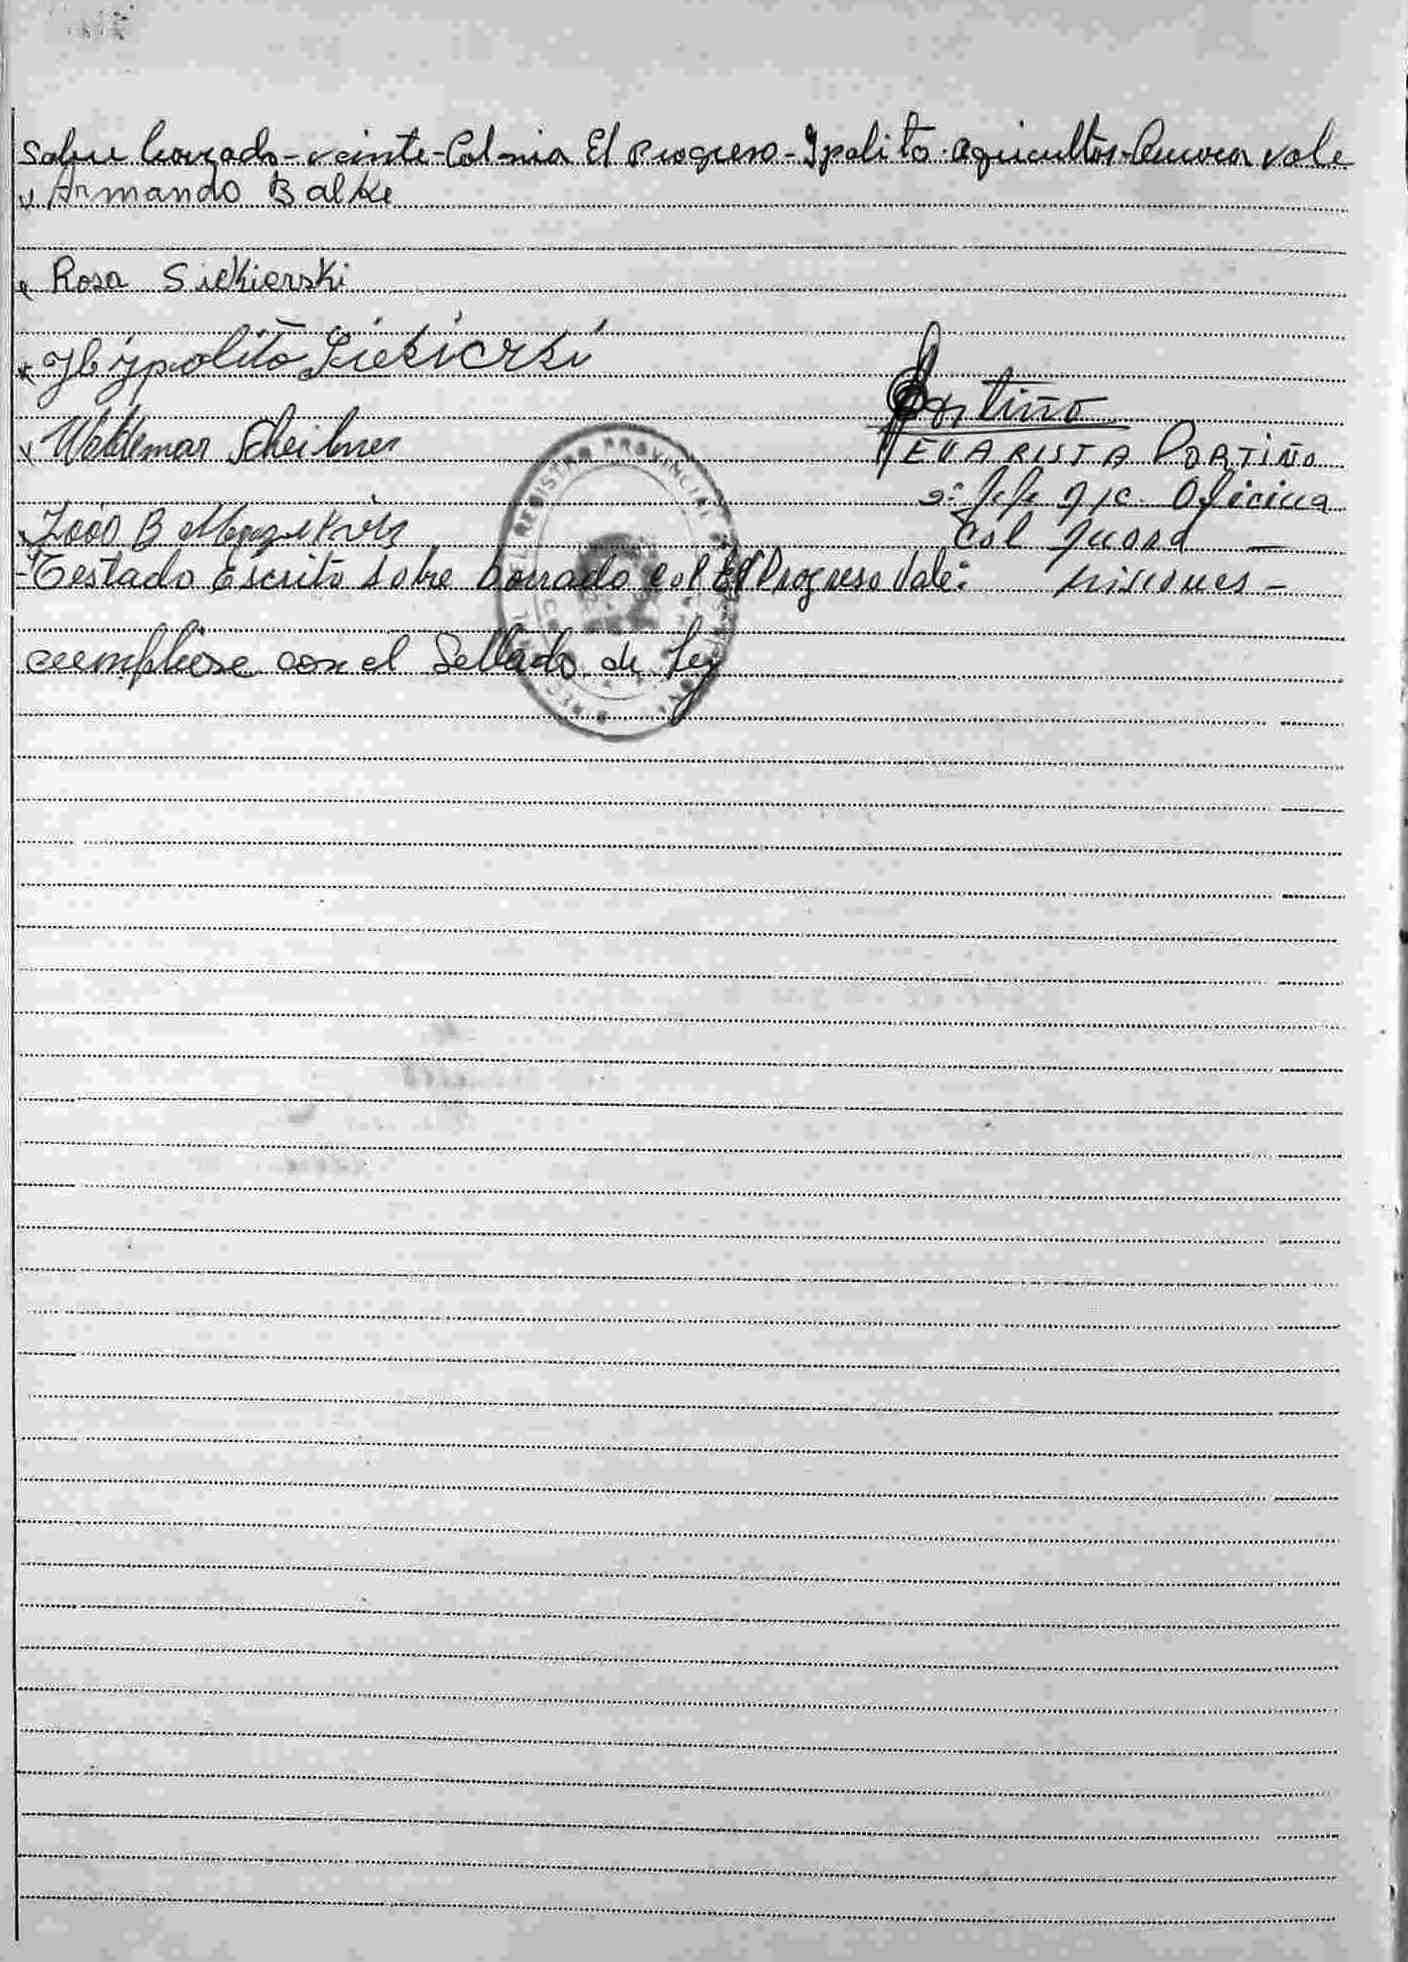 Sobre borrado - veinte - Colonia El Progreso - Ypolito - Agricultor - Aurora vale
Armando Balke
Rosa Siekierski
Hÿpolito Siekierski
Waldemar Scheibner
Portiño
EVARISTA PORTIÑO
2º Jefe Oficina
Col Guaraní
Misiones -
João B
- Testado Escrito sobre borrado col El Progreso Vale:
cumpliose con el Sellado de Ley
REGISTRO PROVINCIAL